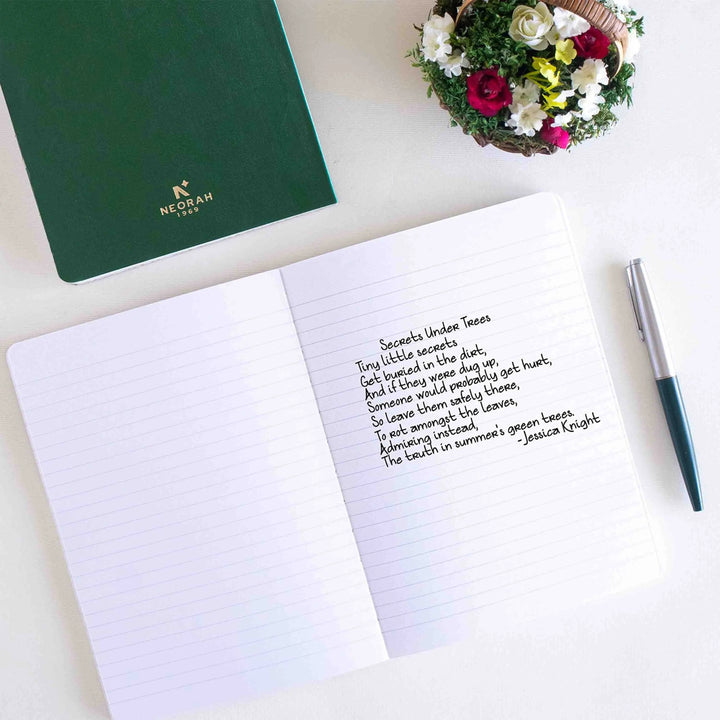 NEORAH
1969
Secrets Under Trees
Tiny little secrets
Get buried in the dirt,
And if they were dug up,
Someone would probably get hurt,
So leave them safely there,
To rot amongst the leaves,
Admiring instead,
The truth in summer's green trees.
-Jessica Knight